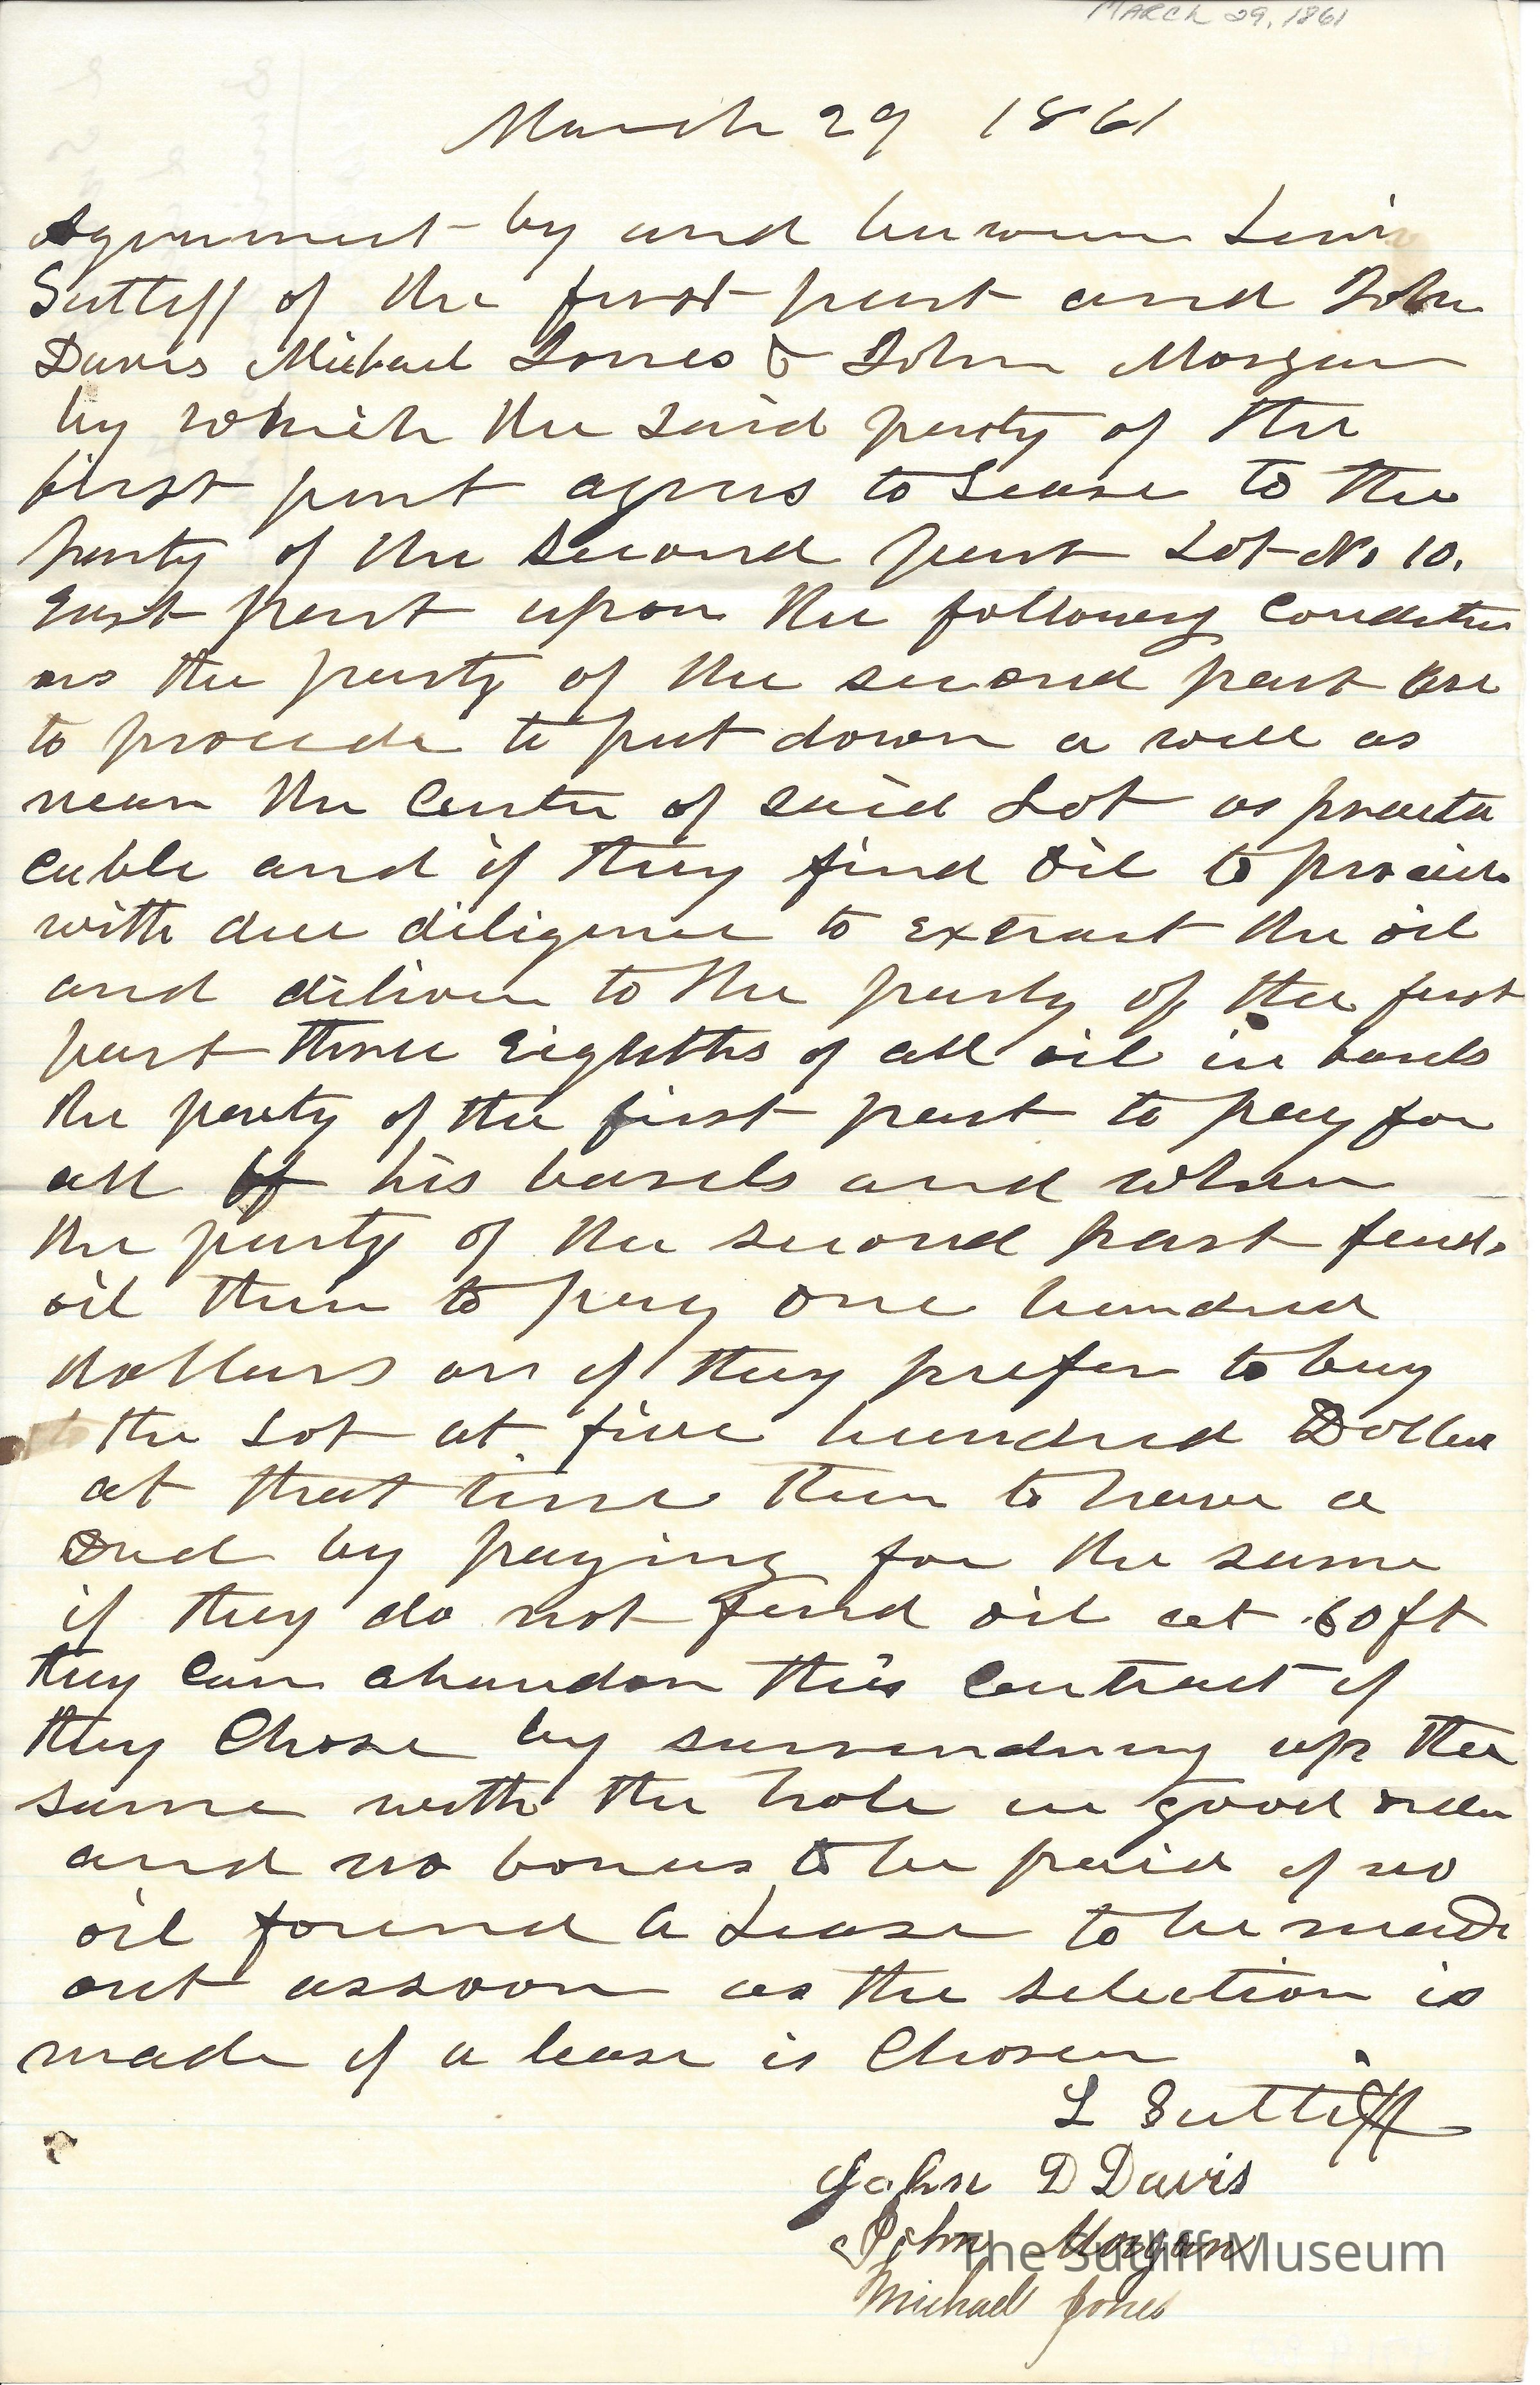 MARCH 29, 1861
March 29 1861
Agreement by and between Levi
Sutliff of the first part and John
Davis Michael Jones & John Morgan
by which the said party of the
first part agrees to Lease to the
party of the second part Lot No 10.
East part upon the following Condition
as the party of the second part are
to proceede to put down a well as
near the Center of said Lot as practa
cable and if they find oil to proceede
with due diligence to Extract the oil
and deliver to the party of the first
part three Eighths of all oil in barels
the party of the first part to pay for
all of his barels and when
the party of the second part finds
oil then to pay one hundred
dollars or if they prefer to buy
the Lot at five hundred Dollars
at that time then to have a
Deed by paying for the same
if they do not find oil at 60 ft
they can abandon this Contract if
they Chose by surrendring up the
same with the hole in good order
and no bonus to be paid if no
oil found A Lease to be made
out assoon as the selection is
made if a lease is Chosen
L Sutliff
John D Davis
John Morgan
Michael Jones
The Sutliff Museum